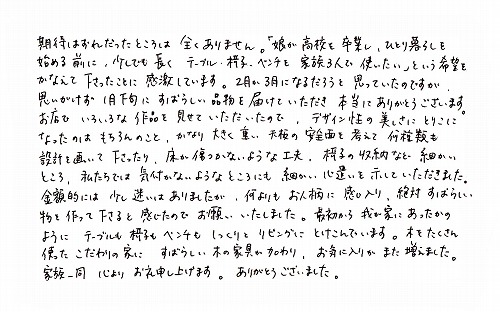 期待はずれだったところは 全くありません。「娘が高校を卒業し、ひとり暮らしを
始める前に、少しでも長く テーブル・椅子・ベンチを 家族3人で 使いたい」という希望を
かなえて 下さったことに 感激しています。2月か3月になるだろうと 思っていたのですが、
思いがけず 1月下旬に すばらしい品物を届けていただき 本当にありがとうございます。
お店で いろいろな 作品を 見せて いただいたので、デザイン性の 美しさに とりこに
なったのは もちろんのこと、かなり 大きく 重い 天板の 安全面を 考えて 何種類も
設計を画いて 下さったり、床が傷つかないような工夫、椅子の収納など 細かい
ところ、私たちでは 気付かないようなところにも 細かい 心遣いを 示していただきました。
金額的には 少し 迷いはありましたが、何よりも お人柄に 感じ入り、絶対 すばらしい
物を 作って 下さると 感じたので お願い いたしました。最初から 我が家に あったかの
ように テーブルも 椅子も ベンチも しっくりと リビングに とけこんでいます。木をたくさん
使った こだわりの家に すばらしい 木の家具が加わり、お気に入りが また 増えました。
家族一同 心より お礼申し上げます。ありがとうございました。